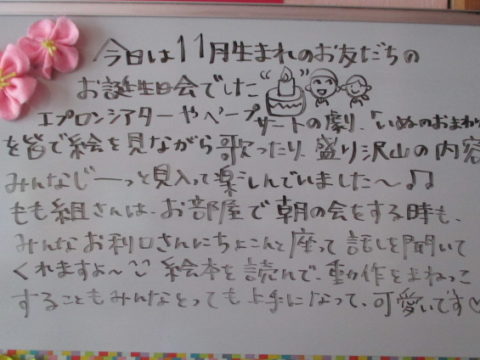 今日は11月生まれのお友だちの
お誕生日会でした
エプロンシアターやペープサートの劇、「いぬのおまわり
を皆で絵を見ながら歌ったり、盛り沢山の内容
みんなじーっと見入って楽しんでいました〜♪♫
もも組さんは、お部屋で朝の会をする時も、
みんなお利口さんにちょこんと座って話しを聞いて
くれますよ〜 絵本を読んで、動作をまねっこ
することもみんなとっても上手になって、可愛いです♡